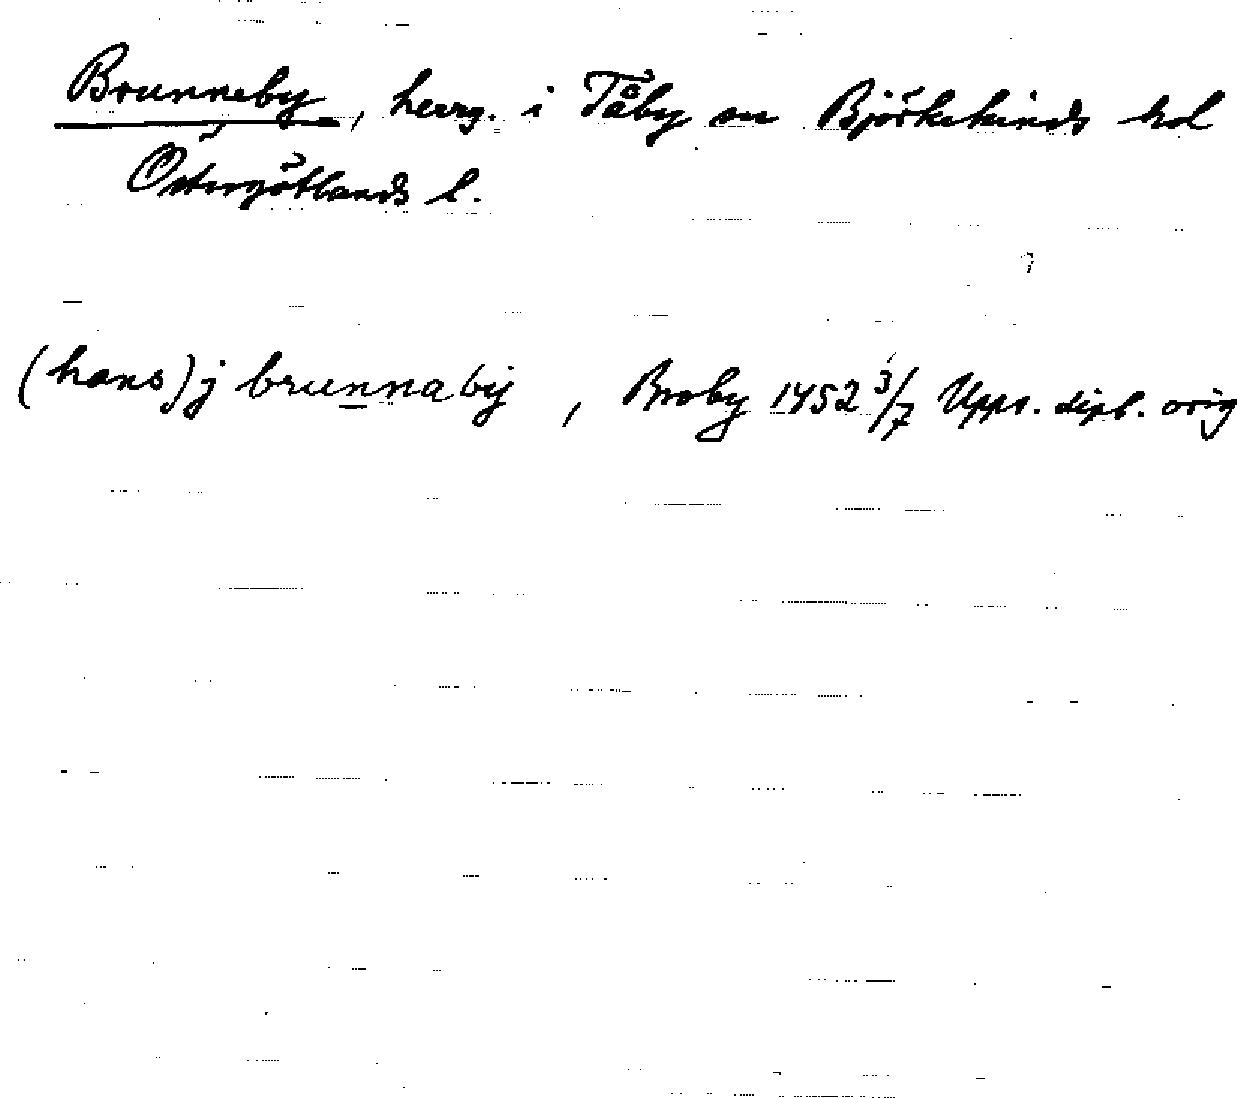 Brunneby, herrg. i Tåby sn Björkekinds hd
Östergötlands l.
(hans) j brunnabij , Broby 1452 3/7 Upps. dipl. orig